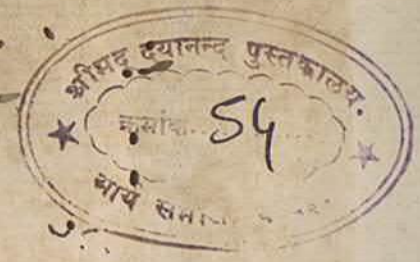 श्रीमद् दयानन्द पुस्तकालय.
क्रमांक.. 54
आर्य समाज